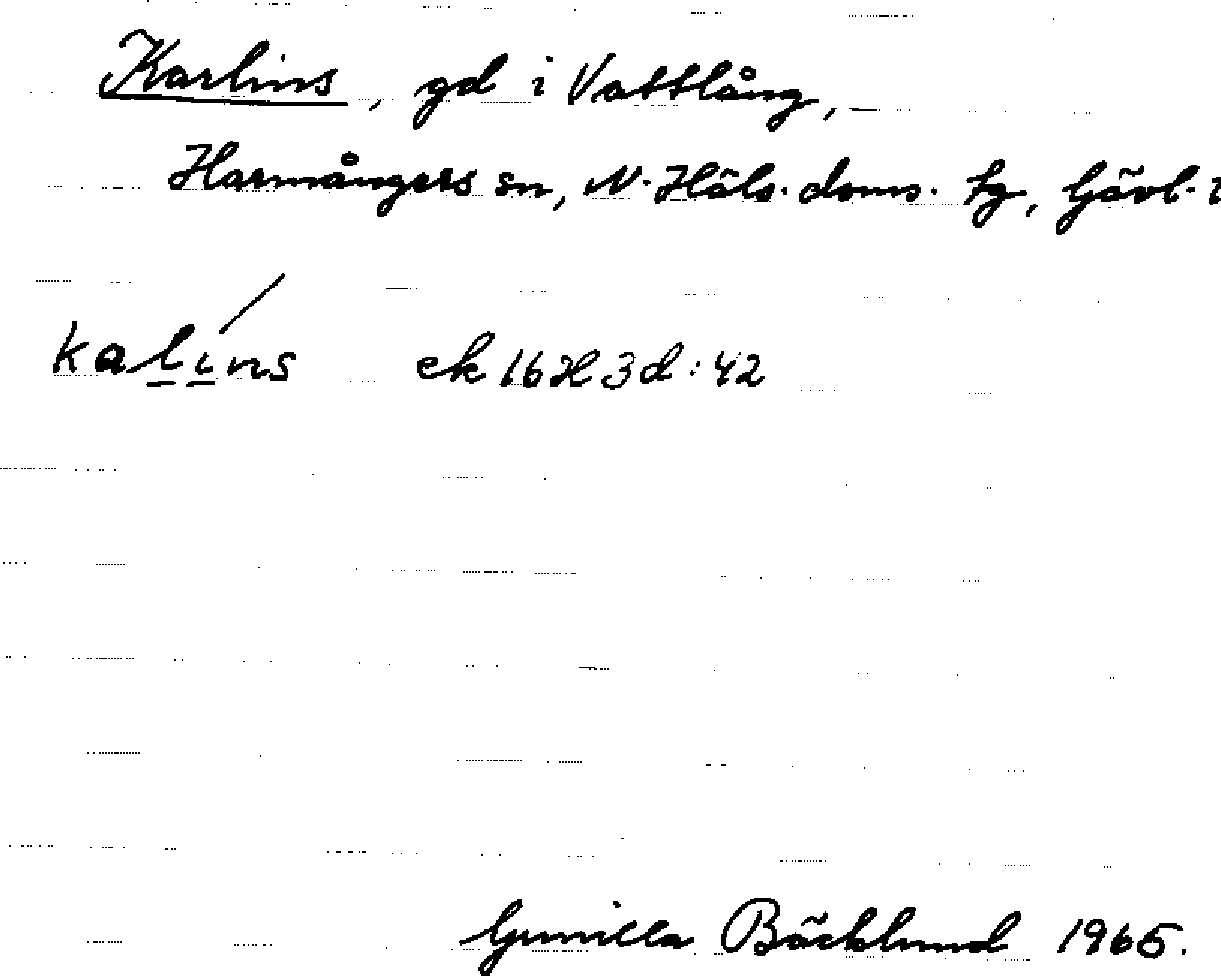 Karlins, gd i Vattlång,
Harmångers sn, N. Häls. doms. tg, Gävl.
kalins ek 16H3d:42
Gunilla Bäcklund 1965.